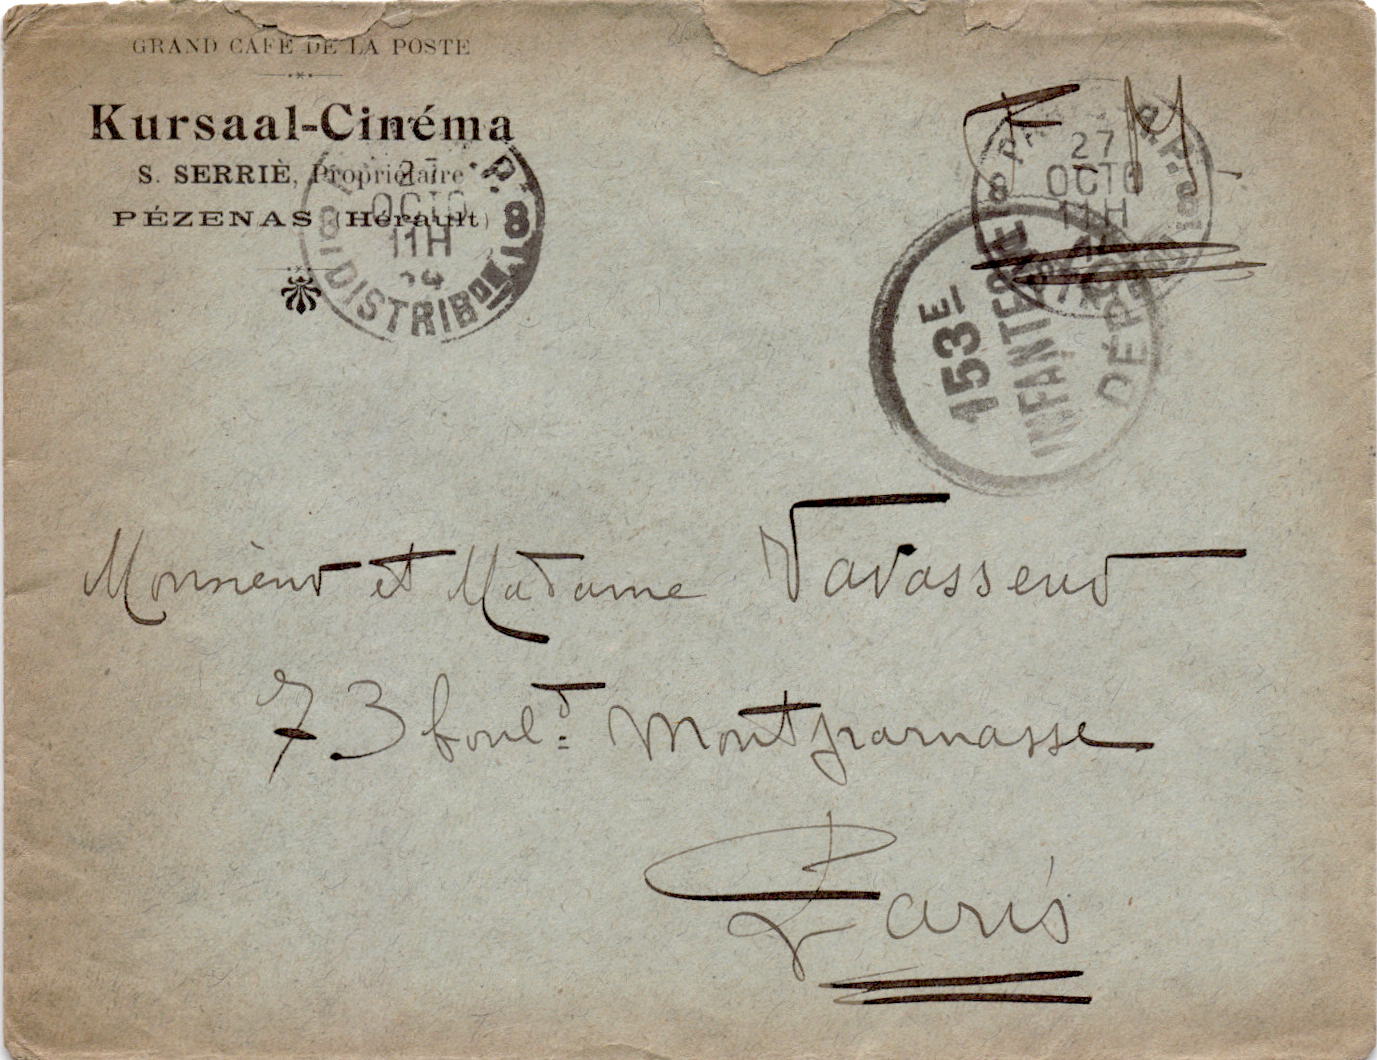 GRAND CAFÉ DE LA POSTE
Kursaal-Cinéma
S. SERRIÈ, Propriétaire
PÉZENAS (Hérault)
8 OCTO 8
11H
DISTRIBon
F M
27
8 OCTO
11H
153E
INFANTERIE
DÉP
Monsieur et Madame Vavasseur
73 bould Montparnasse
Paris